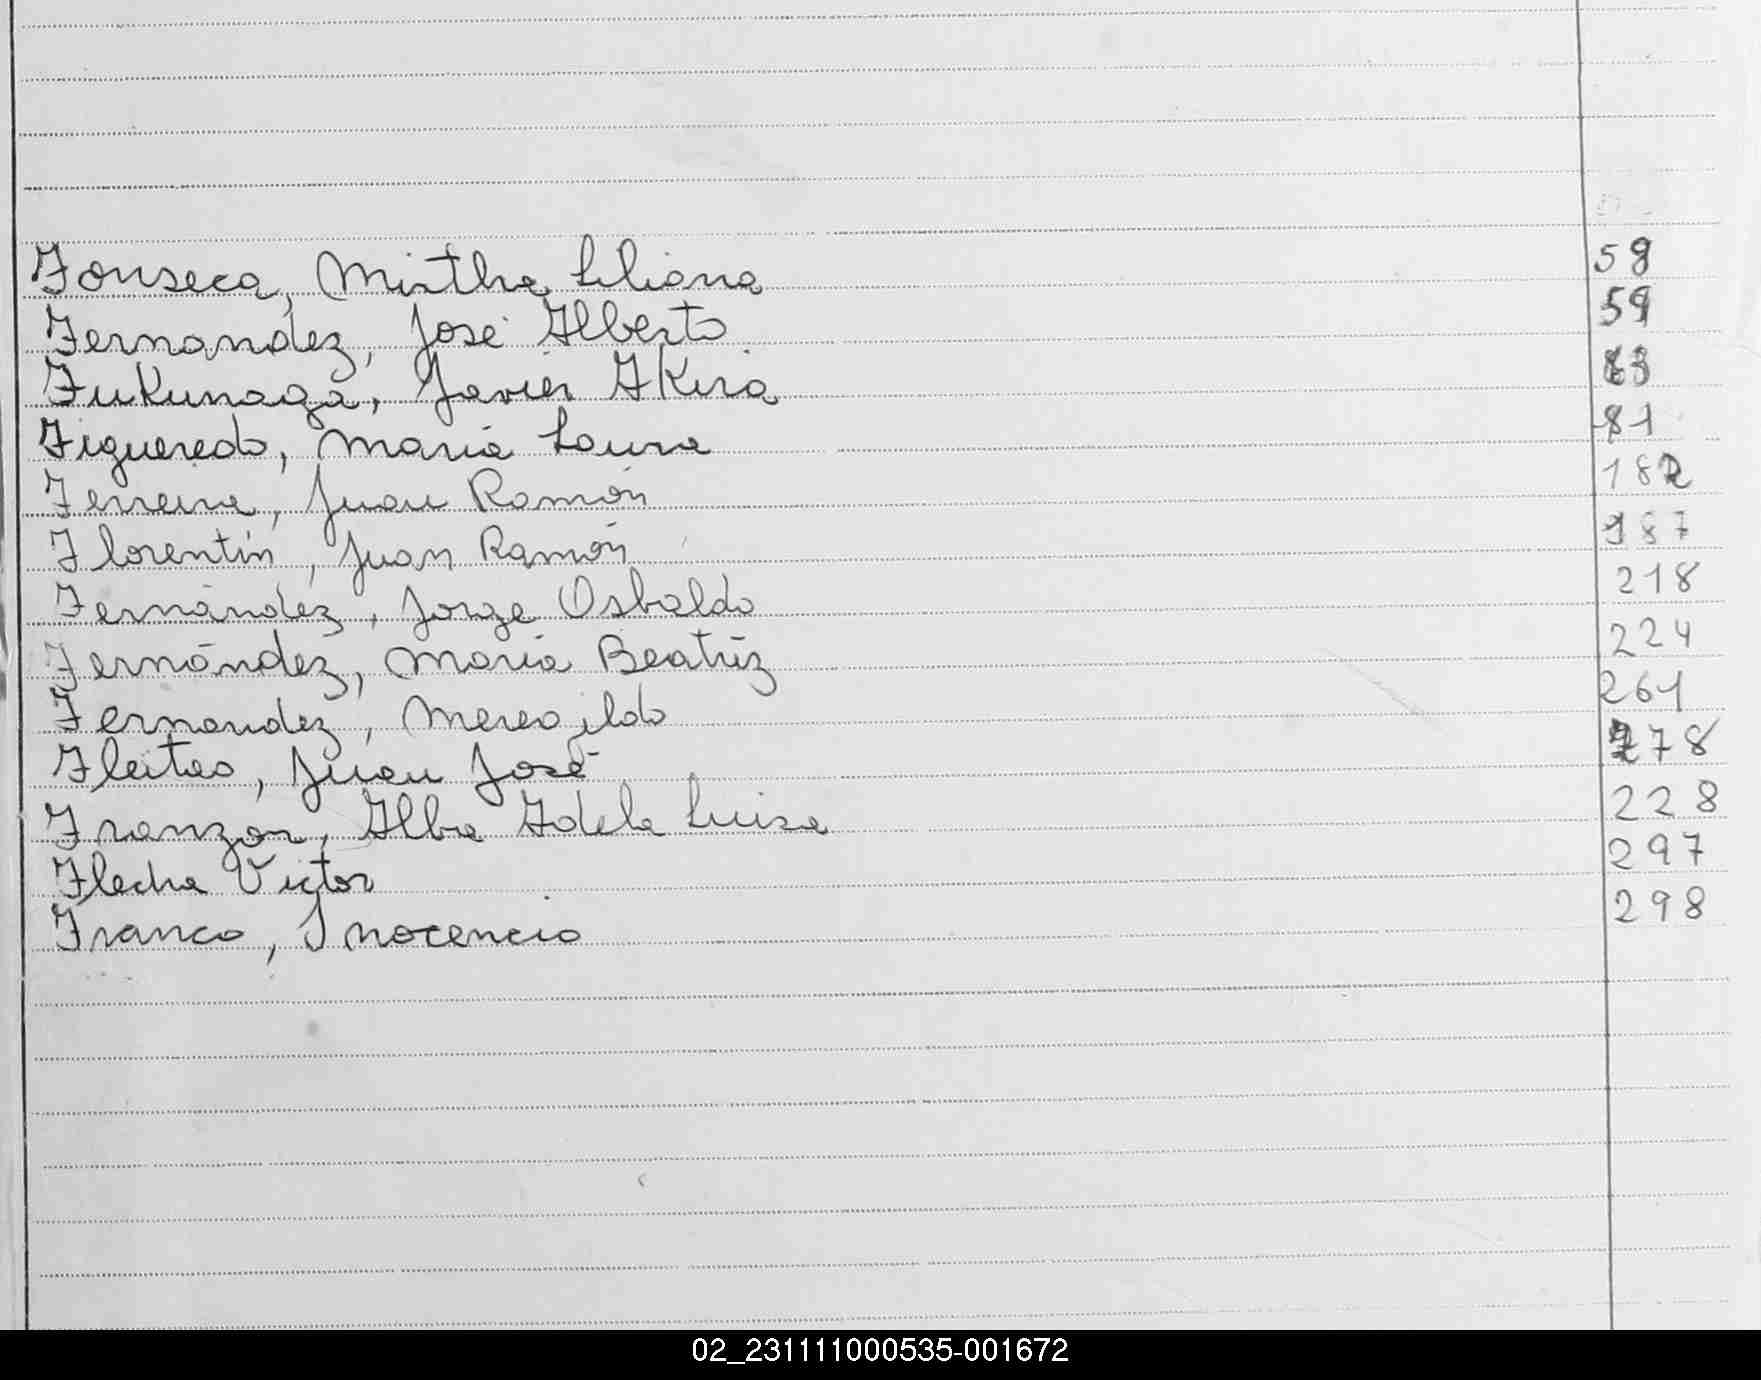 Fonseca, Mirtha Liliana 59
Fernandez, José Alberto 59
Fukunaga, Javier Akira 63
Figueredo, Maria Laura 81
Ferreira, Juan Ramón 182
Florentín, Juan Ramón 187
Fernández, Jorge Osbaldo 218
Fernández, María Beatríz 224
Fernandez, 261
Fleitas, Juan José 278
Franzon, Alba Adela Luisa 228
Flecha Victor 297
Franco, Inocencio 298
02_231111000535-001672